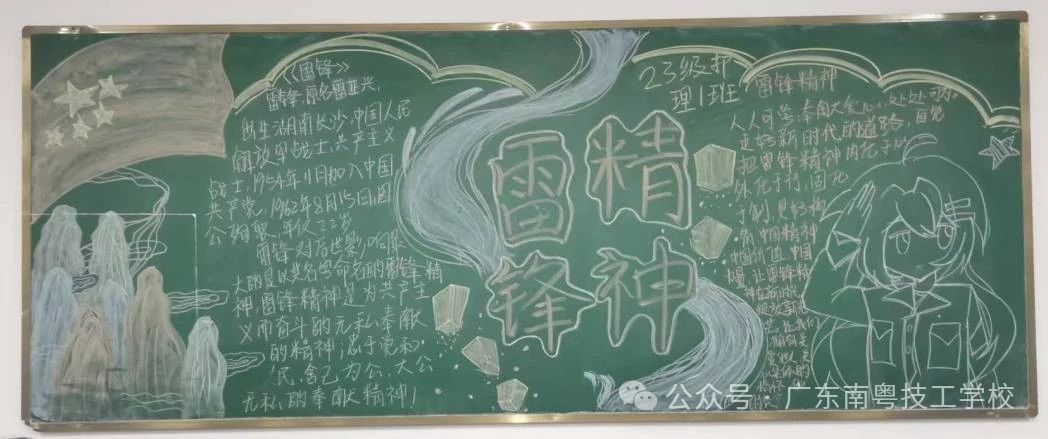 《雷锋》
雷锋,原名雷正兴,
出生湖南长沙,中国人民
解放军战士,共产主义
战士,1954年11月加入中国
共产党,1962年8月15日,因
公殉职,年仅22岁
雷锋对后世影响最
大的是以其名字命名的雷锋精
神,雷锋精神是为共产主
义而奋斗的无私奉献
的精神;忠于党和
人民,舍己为公,大公
无私的奉献精神!
雷锋
精神
23级护
理1班
雷锋精神
人人可学,奉献大爱心,处处可为。
走好新时代的道路,自觉
把雷锋精神内化于心
外化于行,固化
于制,更好构
筑中国精神
中国价值中国
让雷锋精
神在新时代
公众号 广东南粤技工学校